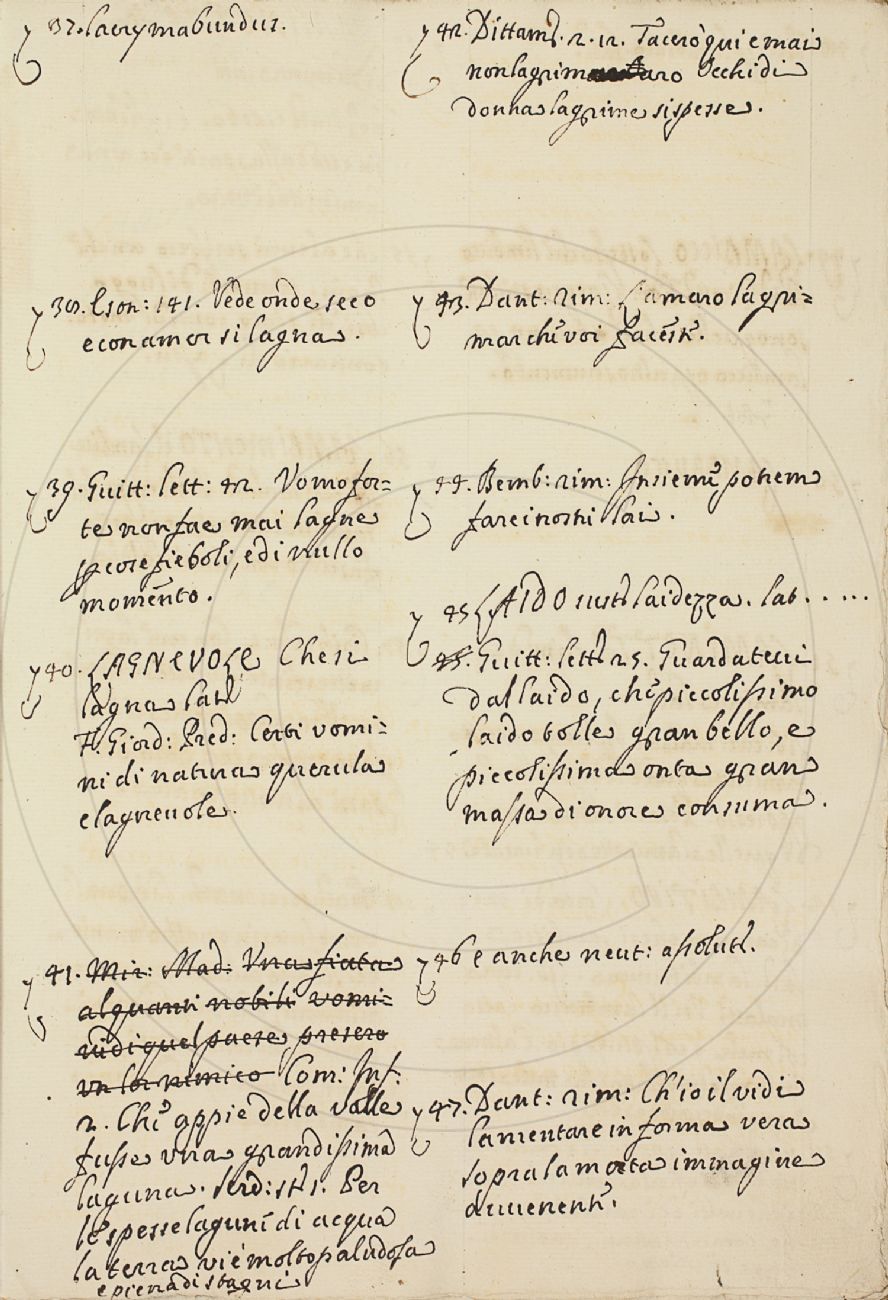 37. lacrymabundus.
38. Eson: 141. Vede onde seco
e con amor si lagna.
39. Guitt: lett: 42. Vomo for=
te non fae mai lagne
pcose fieboli, e di nullo
momento.
40. LAGNEVOLE Che si
lagna lat
F. Giord: Pred: Certi vomi=
ni di natura querula
e lagnevole.
41. Mir: Mad: Vna fiata
alquanti nobili vomi=
ni di quel paese presero
un lor nimico Com: Inf:
2. Che appie della valle
fusse vna grandissima
laguna. Serd: st: 1. Per
le spesse lagune di acqua
la terra vi è molto paludosa
e piena di stagni
42. Dittam. 2. 12. Tacerò qui e mai
non lagrimaro Occhi di
donna lagrime si spesse.
43. Dant: rim: L'amaro lagri=
mar che voi faceste.
44. Bemb: rim: Insieme potrem
fare i nostri lai.
45 LAIDO sust laidezza. lat. . . . .
45. Guitt: lett 25. Guardatevi
dal laido, che piccolissimo
laido tolle gran bello, e
piccolissima onta gran
massa di onore consuma.
46 e anche neut: assolut.
47. Dant: rim: Ch'io il vidi
lamentare in forma vera
sopra la morta immagine
avvenente.